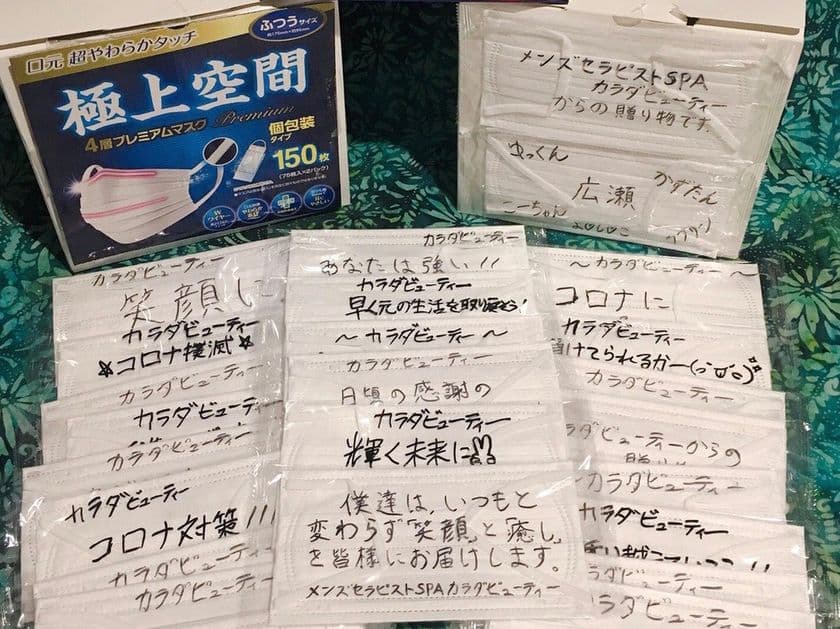 ふつうサイズ
口元 超やわらかタッチ
極上空間
4層プレミアムマスク Premium
個包装
タイプ
150枚
(75枚入×2パック)
Wワイヤー
メンズセラピストSPA
カラダビューティー
からの贈り物です。
ゆっくん
広瀬
かずたん
こーちゃん
カラダビューティー
笑顔に
カラダビューティー
☆コロナ撲滅☆
カラダビューティー
カラダビューティー
カラダビューティー
カラダビューティー
コロナ対策!!!
カラダビューティー
カラダビューティー
カラダビューティー
あなたは強い!!
カラダビューティー
早く元の生活を取り戻そう!
～カラダビューティー～
カラダビューティー
日頃の感謝の
カラダビューティー
輝く未来に
僕達は、いつもと
変わらず「笑顔」と「癒し」
を皆様にお届けします。
メンズセラピストSPAカラダビューティー
～カラダビューティー～
コロナに
カラダビューティー
負けてられるかー
カラダビューティー
カラダビューティーからの
カラダビューティー
カラダビューティー
カラダビューティー
カラダビューティー